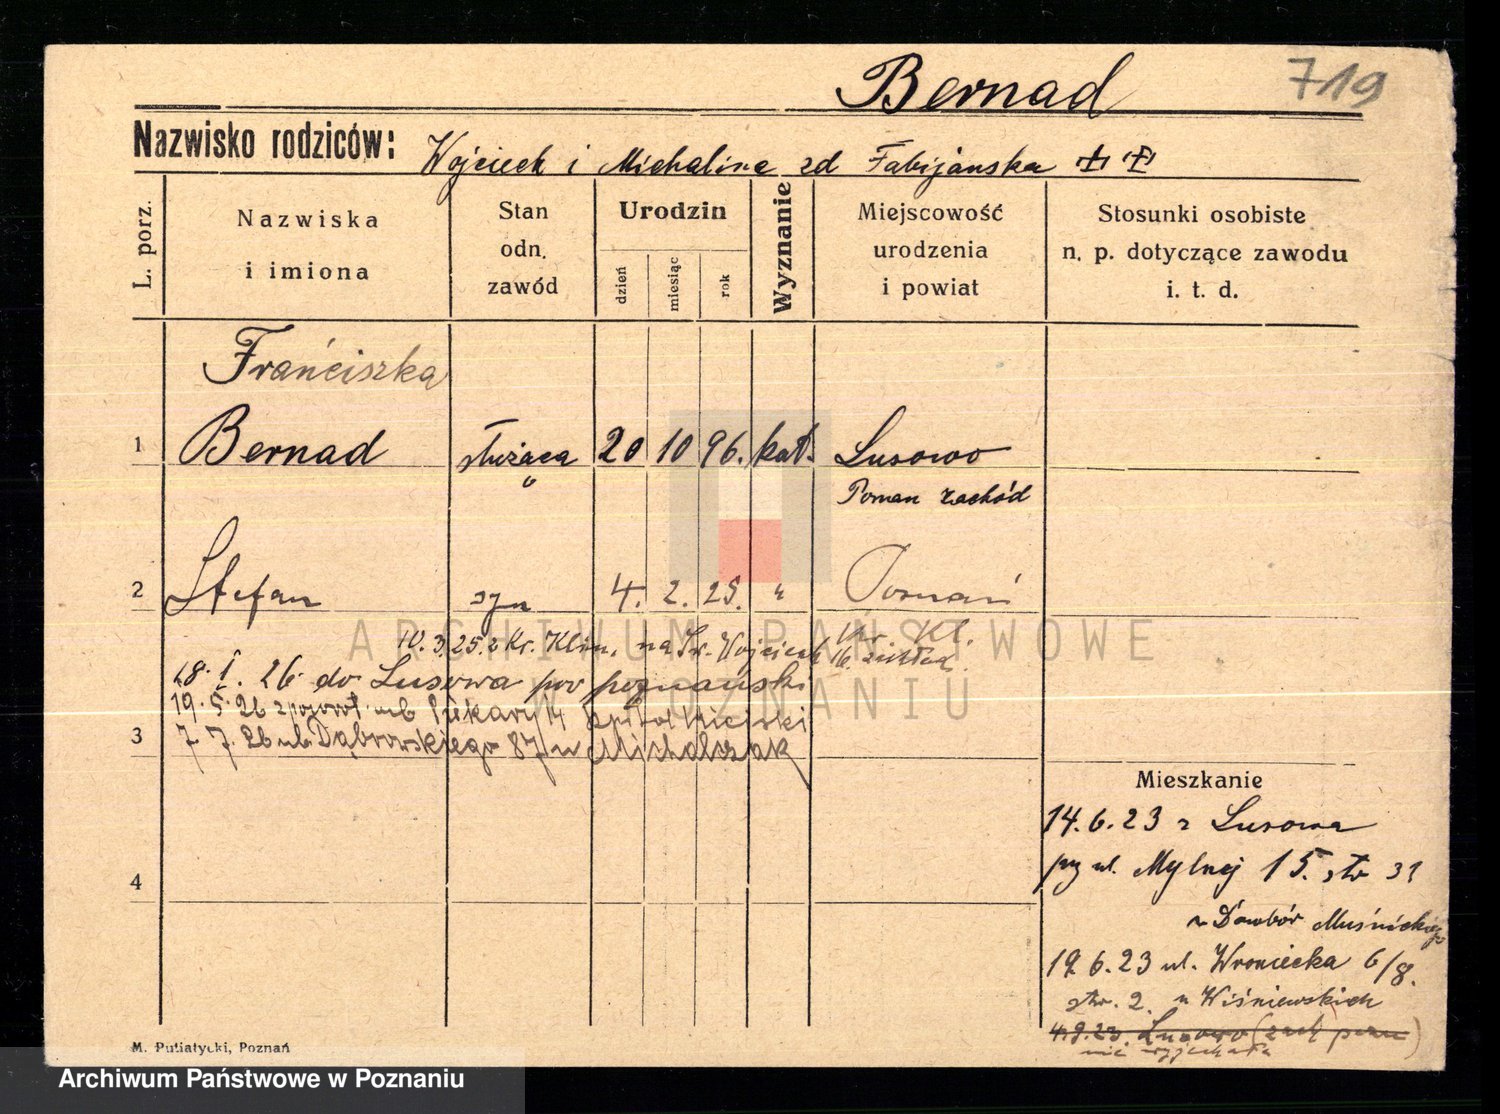 Bernad 719
Nazwisko rodziców: Wojciech i Michalina zd Fabijańska
L. porz.
Nazwiska i imiona
Stan odn. zawód
Urodzin
dzień
miesiąc
rok
Wyznanie
Miejscowość urodzenia i powiat
Stosunki osobiste n. p. dotyczące zawodu i. t. d.
Franciszka
1 Bernad służąca 20 10 96. kat. Lusowo
Poznań zachód
2 Stefan syn 4. 2. 25. " Poznań
10.3.25. z Kr. Klin. na Św. Wojciech
Kr. Kl.
18. I. 26 do Lusowa pow poznański
19.5.26 zpowrot ul. Piekary Szpital Miejski
3 7 7. 26 ul. Dąbrowskiego 87 u Michalczak
4
Mieszkanie
14.6.23 z Lusowa
przy ul. Mylnej 15. str 31
u Dowbór Muśnickiego
19.6.23 ul. Wroniecka 6/8.
str. 2. u Wiśniewskich
4.9.23. Lusowo (zach pozn)
nie wyjechała
M. Putiatycki, Poznań
ARCHIWUM PAŃSTWOWE
W POZNANIU
Archiwum Państwowe w Poznaniu